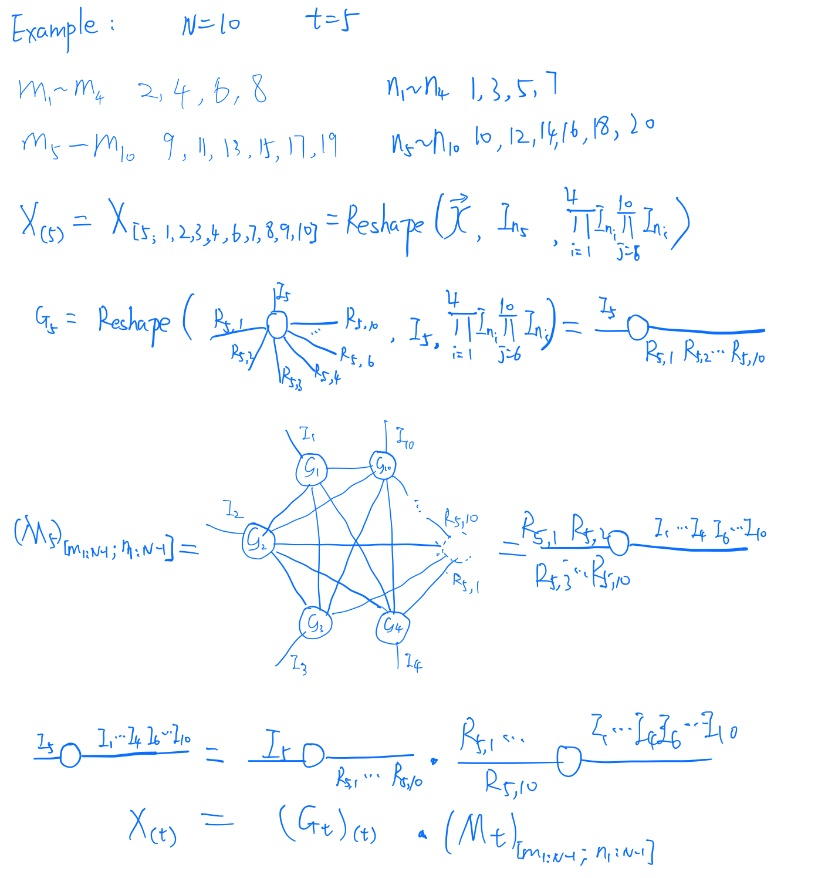 Example: N=10 t=5
m₁~m₄ 2,4,6,8 n₁~n₄ 1,3,5,7
m₅-m₁₀ 9,11,13,15,17,19 n₅~n₁₀ 10,12,14,16,18,20
X₍₅₎ = X_[5; 1,2,3,4,6,7,8,9,10] = Reshape(x⃗, I_n₅, ∏_{i=1}^{4} I_nᵢ ∏_{j=6}^{10} I_nᵢ)
G₅ = Reshape( R₅,₁ R₅,₂ R₅,₃ R₅,₄ R₅,₆ ... R₅,₁₀ I₅ , I₅, ∏_{i=1}^{4} I_nᵢ ∏_{j=6}^{10} I_nᵢ) = I₅ R₅,₁ R₅,₂ ... R₅,₁₀
I₁ I₁₀
G₁ G₁₀
I₂ R₅,₁₀
(M₅)_[m₁:N-1; n₁:N-1] = G₂ = R₅,₁ R₅,₂ I₁...I₄ I₆...I₁₀
R₅,₁ R₅,₃...R₅,₁₀
G₃ G₄
I₃ I₄
I₅ I₁...I₄ I₆...I₁₀ = I₅ R₅,₁ ... R₅,₁₀ · R₅,₁ ... R₅,₁₀ I₁...I₄ I₆...I₁₀
X₍t₎ = (Gt)₍t₎ · (Mt)_[m₁:N-1; n₁:N-1]